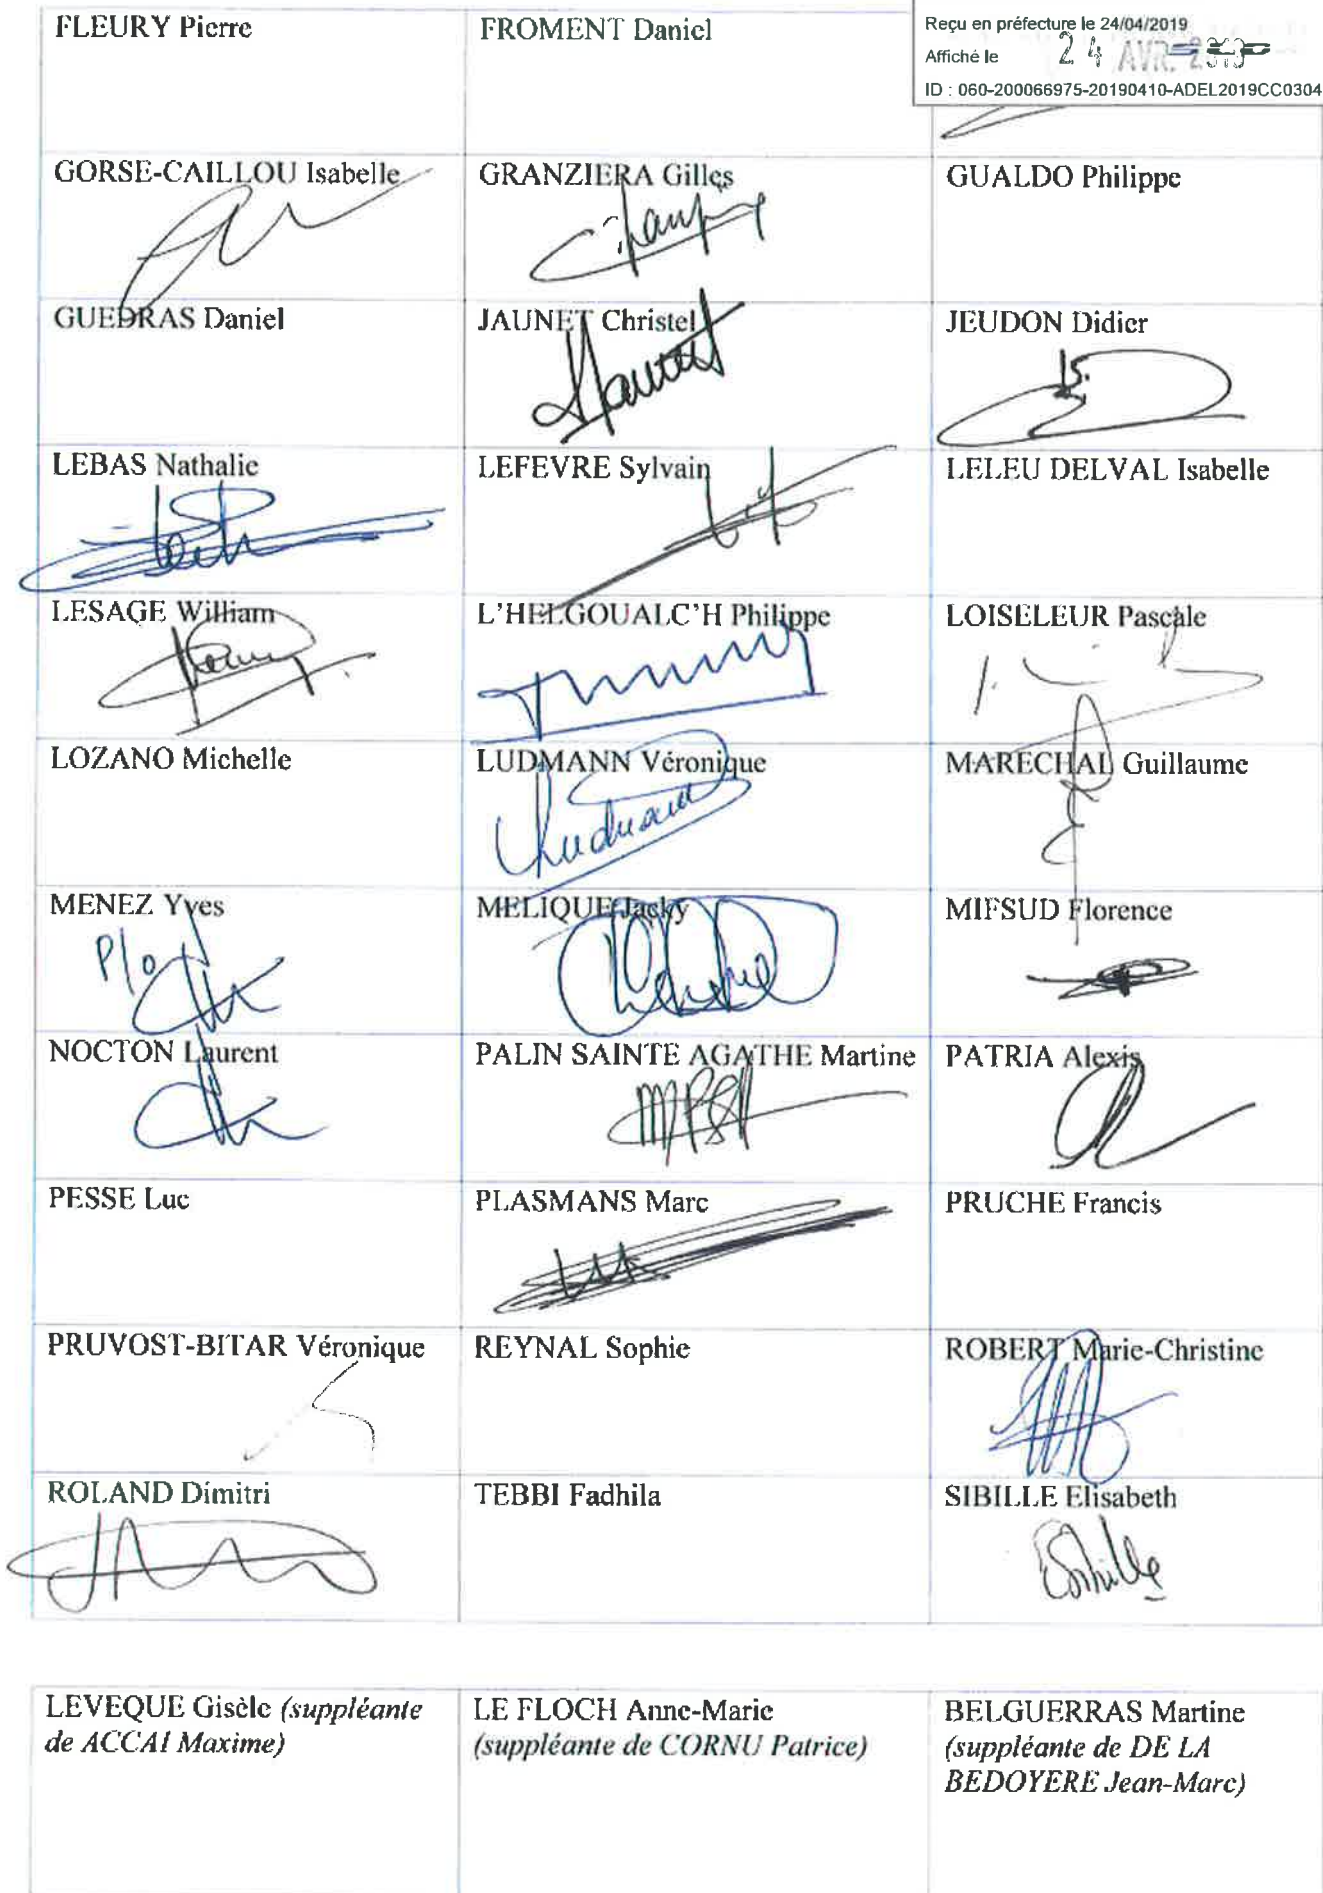 FLEURY Pierre
FROMENT Daniel
Reçu en préfecture le 24/04/2019
Affiché le 24 AVR. 2019
ID : 060-200066975-20190410-ADEL2019CC0304
GORSE-CAILLOU Isabelle
GRANZIERA Gilles
GUALDO Philippe
GUEDRAS Daniel
JAUNET Christel
JEUDON Didier
LEBAS Nathalie
LEFEVRE Sylvain
LELEU DELVAL Isabelle
LESAGE William
L'HELGOUALC'H Philippe
LOISELEUR Pascale
LOZANO Michelle
LUDMANN Véronique
MARECHAL Guillaume
MENEZ Yves
P/o
MELIQUE Jacky
MIFSUD Florence
NOCTON Laurent
PALIN SAINTE AGATHE Martine
MPSA
PATRIA Alexis
PESSE Luc
PLASMANS Marc
PRUCHE Francis
PRUVOST-BITAR Véronique
REYNAL Sophie
ROBERT Marie-Christine
ROLAND Dimitri
TEBBI Fadhila
SIBILLE Elisabeth
LEVEQUE Gisèle (suppléante
de ACCAI Maxime)
LE FLOCH Anne-Marie
(suppléante de CORNU Patrice)
BELGUERRAS Martine
(suppléante de DE LA
BEDOYERE Jean-Marc)